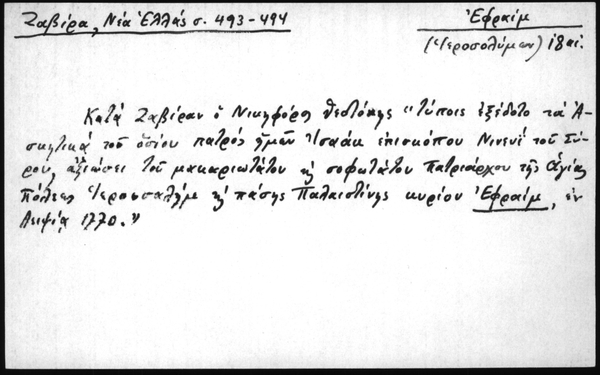 Ζαβίρα, Νέα Ἑλλάς σ. 493-494
Ἐφραίμ
(Ἱεροσολύμων) 18 αἰ.
Κατά Ζαβίραν ὁ Νικηφόρος Θεοτόκης "τύποις ἐξέδοτο τά Ἀ-
σκητικά τοῦ ὁσίου πατρός ἡμῶν Ἰσαάκ ἐπισκόπου Νινευί τοῦ Σύ-
ρου, ἀξιώσει τοῦ μακαριωτάτου ϗ σοφωτάτου πατριάρχου τῆς Ἁγίας
πόλεως Ἱερουσαλήμ ϗ πάσης Παλαιστίνης κυρίου Ἐφραίμ, ἐν
Λειψίᾳ 1770."